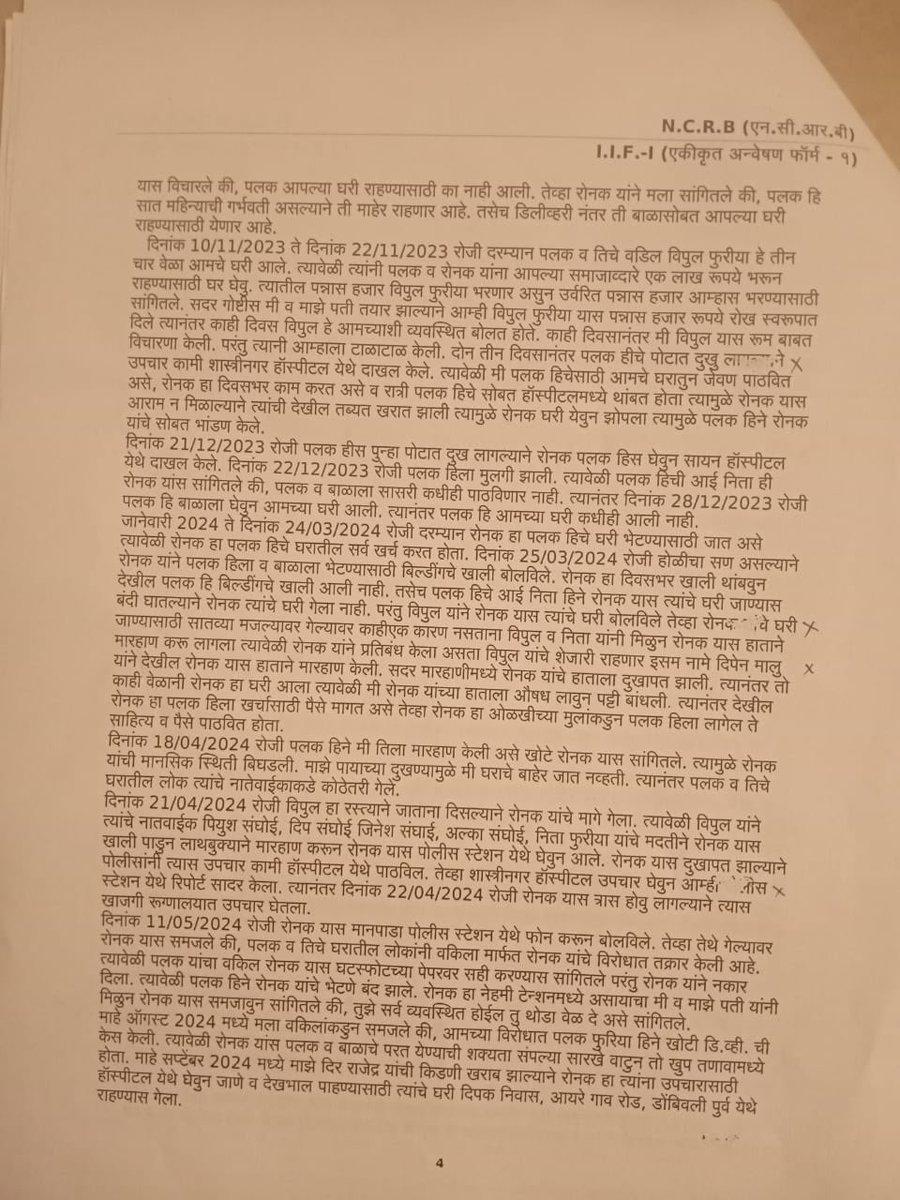 N.C.R.B (एन.सी.आर.बी)
I.I.F.-I (एकीकृत अन्वेषण फॉर्म - १)
यास विचारले की, पलक आपल्या घरी राहण्यासाठी का नाही आली. तेव्हा रोनक यांने मला सांगितले की, पलक हि
सात महिन्याची गर्भवती असल्याने ती माहेर राहणार आहे. तसेच डिलीव्हरी नंतर ती बाळासोबत आपल्या घरी
राहण्यासाठी येणार आहे.
दिनांक 10/11/2023 ते दिनांक 22/11/2023 रोजी दरम्यान पलक व तिचे वडिल विपुल फुरीया हे तीन
चार वेळा आमचे घरी आले. त्यावेळी त्यांनी पलक व रोनक यांना आपल्या समाजाव्दारे एक लाख रूपये भरून
राहण्यासाठी घर घेवु. त्यातील पन्नास हजार विपुल फुरीया भरणार असुन उर्वरित पन्नास हजार आम्हास भरण्यासाठी
सांगितले. सदर गोष्टीस मी व माझे पती तयार झाल्याने आम्ही विपुल फुरीया यास पन्नास हजार रूपये रोख स्वरूपात
दिले त्यानंतर काही दिवस विपुल हे आमच्याशी व्यवस्थित बोलत होते. काही दिवसानंतर मी विपुल यास रूम बाबत
विचारणा केली. परंतु त्यानी आम्हाला टाळाटाळ केली. दोन तीन दिवसानंतर पलक हीचे पोटात दुखु
उपचार कामी शास्त्रीनगर हॉस्पीटल येथे दाखल केले. त्यावेळी मी पलक हिचेसाठी आमचे घरातुन जेवण पाठवित
असे, रोनक हा दिवसभर काम करत असे व रात्री पलक हिचे सोबत हॉस्पीटलमध्ये थांबत होता त्यामुळे रोनक यास
आराम न मिळाल्याने त्यांची देखील तब्यत खरात झाली त्यामुळे रोनक घरी येवुन झोपला त्यामुळे पलक हिने रोनक
यांचे सोबत भांडण केले.
दिनांक 21/12/2023 रोजी पलक हीस पुन्हा पोटात दुख लागल्याने रोनक पलक हिस घेवुन सायन हॉस्पीटल
येथे दाखल केले. दिनांक 22/12/2023 रोजी पलक हिला मुलगी झाली. त्यावेळी पलक हिची आई निता ही
रोनक यांस सांगितले की, पलक व बाळाला सासरी कधीही पाठविणार नाही. त्यानंतर दिनांक 28/12/2023 रोजी
पलक हि बाळाला घेवुन आमच्या घरी आली. त्यानंतर पलक हि आमच्या घरी कधीही आली नाही.
जानेवारी 2024 ते दिनांक 24/03/2024 रोजी दरम्यान रोनक हा पलक हिचे घरी भेटण्यासाठी जात असे
त्यावेळी रोनक हा पलक हिचे घरातील सर्व खर्च करत होता. दिनांक 25/03/2024 रोजी होळीचा सण असल्याने
रोनक यांने पलक हिला व बाळाला भेटण्यासाठी बिल्डींगचे खाली बोलविले. रोनक हा दिवसभर खाली थांबवुन
देखील पलक हि बिल्डींगचे खाली आली नाही. तसेच पलक हिचे आई निता हिने रोनक यास त्यांचे घरी जाण्यास
बंदी घातल्याने रोनक त्यांचे घरी गेला नाही. परंतु विपुल यांने रोनक यास त्यांचे घरी बोलविले तेव्हा घरी
जाण्यासाठी सातव्या मजल्यावर गेल्यावर काहीएक कारण नसताना विपुल व निता यांनी मिळुन रोनक यास हाताने
मारहाण करू लागला त्यावेळी रोनक यांने प्रतिबंध केला असता विपुल यांचे शेजारी राहणार इसम नामे दिपेन मालु
यांने देखील रोनक यास हाताने मारहाण केली. सदर मारहाणीमध्ये रोनक यांचे हाताला दुखापत झाली. त्यानंतर तो
काही वेळानी रोनक हा घरी आला त्यावेळी मी रोनक यांच्या हाताला औषध लावुन पट्टी बांधली. त्यानंतर देखील
रोनक हा पलक हिला खर्चासाठी पैसे मागत असे तेव्हा रोनक हा ओळखीच्या मुलांकडुन पलक हिला लागेल ते
साहित्य व पैसे पाठवित होता.
दिनांक 18/04/2024 रोजी पलक हिने मी तिला मारहाण केली असे खोटे रोनक यास सांगितले. त्यामुळे रोनक
यांची मानसिक स्थिती बिघडली. माझे पायाच्या दुखण्यामुळे मी घराचे बाहेर जात नव्हती. त्यानंतर पलक व तिचे
घरातील लोक त्यांचे नातेवाईकाकडे कोठेतरी गेले.
दिनांक 21/04/2024 रोजी विपुल हा रस्त्याने जाताना दिसल्याने रोनक यांचे मागे गेला. त्यावेळी विपुल यांने
त्यांचे नातवाईक पियुश संघोई, दिप संघोई जिनेश संघाई, अल्का संघोई, निता फुरीया यांचे मदतीने रोनक यास
खाली पाडुन लाथबुक्याने मारहाण करून रोनक यास पोलीस स्टेशन येथे घेवुन आले. रोनक यास दुखापत झाल्याने
पोलीसांनी त्यास उपचार कामी हॉस्पीटल येथे पाठविल. तेव्हा शास्त्रीनगर हॉस्पीटल उपचार घेवुन
स्टेशन येथे रिपोर्ट सादर केला. त्यानंतर दिनांक 22/04/2024 रोजी रोनक यास त्रास होवु लागल्याने त्यास
खाजगी रूग्णालयात उपचार घेतला.
दिनांक 11/05/2024 रोजी रोनक यास मानपाडा पोलीस स्टेशन येथे फोन करून बोलविले. तेव्हा तेथे गेल्यावर
रोनक यास समजले की, पलक व तिचे घरातील लोकांनी वकिला मार्फत रोनक यांचे विरोधात तक्रार केली आहे.
त्यावेळी पलक यांचा वकिल रोनक यास घटस्फोटच्या पेपरवर सही करण्यास सांगितले परंतु रोनक यांने नकार
दिला. त्यावेळी पलक हिने रोनक यांचे भेटणे बंद झाले. रोनक हा नेहमी टेन्शनमध्ये असायाचा मी व माझे पती यांनी
मिळुन रोनक यास समजावुन सांगितले की, तुझे सर्व व्यवस्थित होईल तु थोडा वेळ दे असे सांगितले.
माहे ऑगस्ट 2024 मध्ये मला वकिलांकडुन समजले की, आमच्या विरोधात पलक फुरिया हिने खोटी डि.व्ही. ची
केस केली. त्यावेळी रोनक यांस पलक व बाळाचे परत येण्याची शक्यता संपल्या सारखे वाटुन तो खुप तणावामध्ये
होता. माहे सप्टेंबर 2024 मध्ये माझे दिर राजेद्र यांची किडणी खराब झाल्याने रोनक हा त्यांना उपचारासाठी
हॉस्पीटल येथे घेवुन जाणे व देखभाल पाहण्यासाठी त्यांचे घरी दिपक निवास, आयरे गाव रोड, डोंबिवली पुर्व येथे
राहण्यास गेला.
4